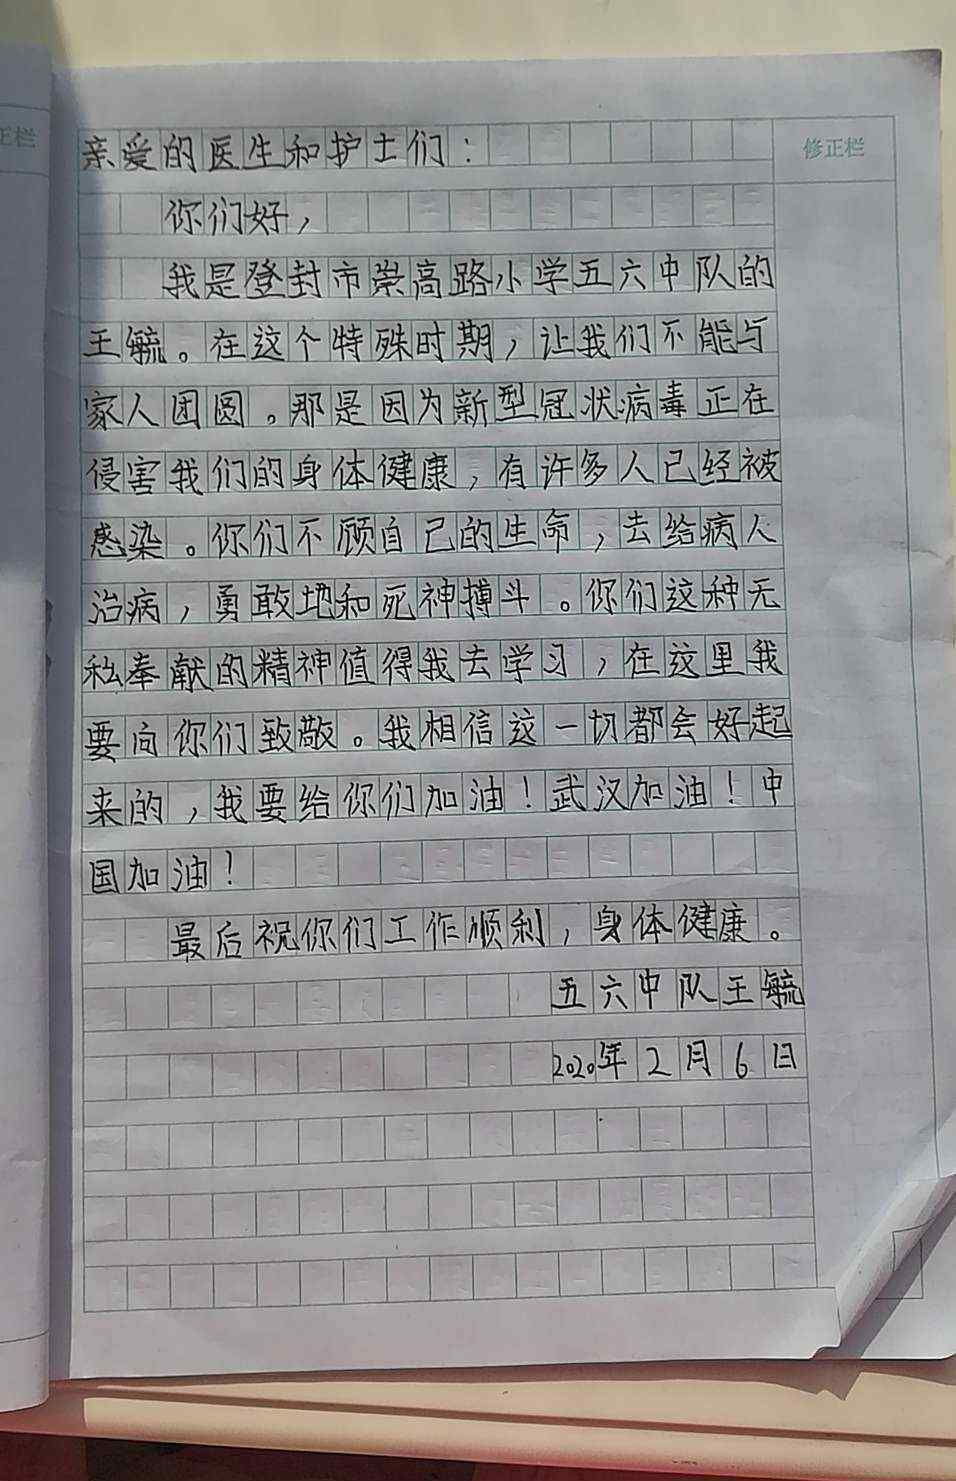 正栏
修正栏
亲爱的医生和护士们：
你们好，
我是登封市崇高路小学五六中队的
王毓。在这个特殊时期，让我们不能与
家人团圆。那是因为新型冠状病毒正在
侵害我们的身体健康，有许多人已经被
感染。你们不顾自己的生命，去给病人
治病，勇敢地和死神搏斗。你们这种无
私奉献的精神值得我去学习，在这里我
要向你们致敬。我相信这一切都会好起
来的，我要给你们加油！武汉加油！中
国加油！
最后祝你们工作顺利，身体健康。
五六中队王毓
2020年2月6日